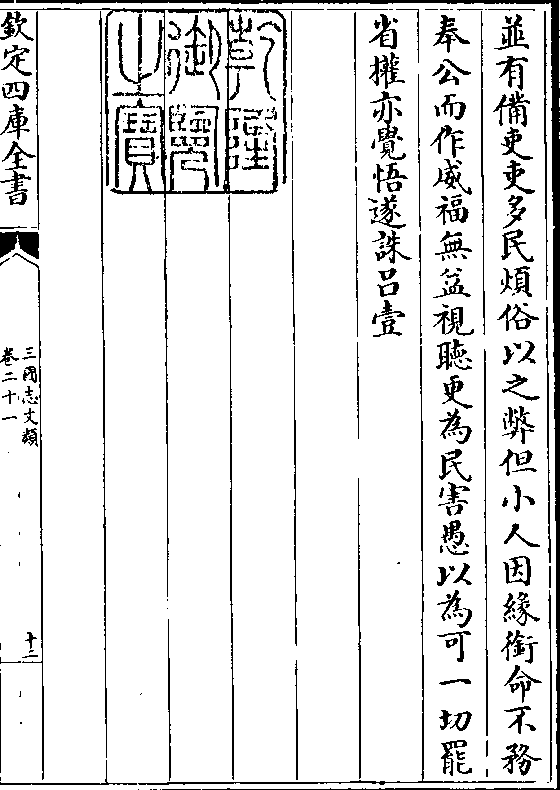 並有備吏吏多民煩俗以之弊但小人因緣銜命不務
奉公而作威福無益視聽更為民害愚以為可一切罷
省權亦覺悟遂誅呂壹
乾隆
御覽
之寶
欽定四庫全書
三國志文類
卷二十一
十二